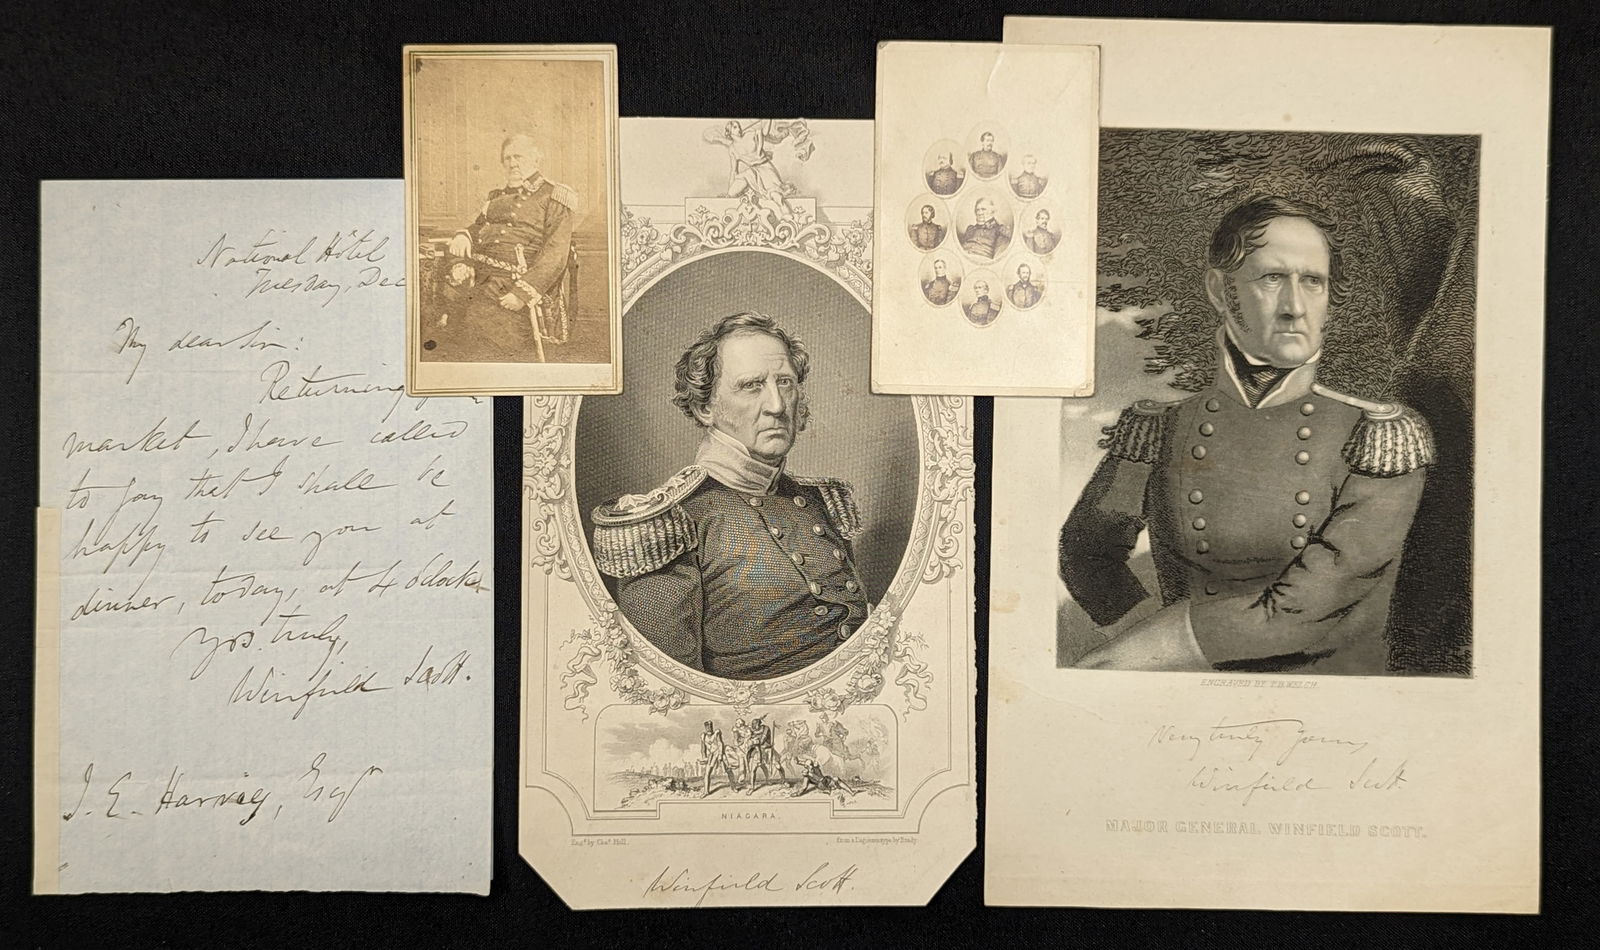 National Hôtel
Tuesday, Dec
My dear Sir:
Returning
market, I have called
to say that I shall be
happy to see you at
dinner, today, at 4 o'clock
Yrs. truly,
Winfield Scott.
J. E. Harvey, Esqr
NIAGARA.
Engd. by Chas. Hall.
from a Daguerreotype by Brady.
Winfield Scott.
ENGRAVED BY T.B. WELCH
Very truly Yours,
Winfield Scott.
MAJOR GENERAL WINFIELD SCOTT.